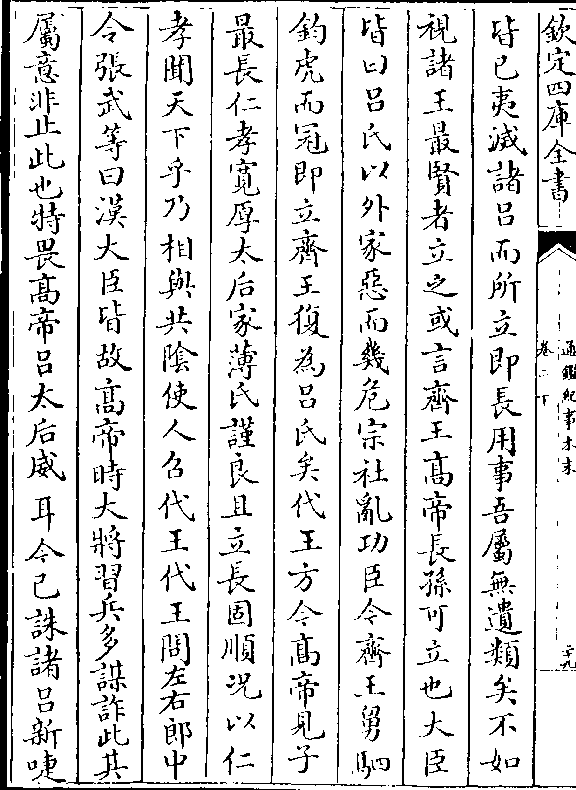 欽定四庫全書
通鑑紀事本末
卷二下
二十九
皆已夷滅諸呂而所立即長用事吾屬無遺類矣不如
視諸王最賢者立之或言齊王髙帝長孫可立也大臣
皆曰呂氏以外家惡而幾危宗社亂功臣令齊王舅駟
鈞虎而冠即立齊王復為呂氏矣代王方今髙帝見子
最長仁孝寛厚太后家薄氏謹良且立長固順况以仁
孝聞天下乎乃相與共隂使人召代王代王問左右郎中
令張武等曰漢大臣皆故髙帝時大將習兵多謀詐此其
屬意非止此也特畏髙帝呂太后威耳今已誅諸呂新啑